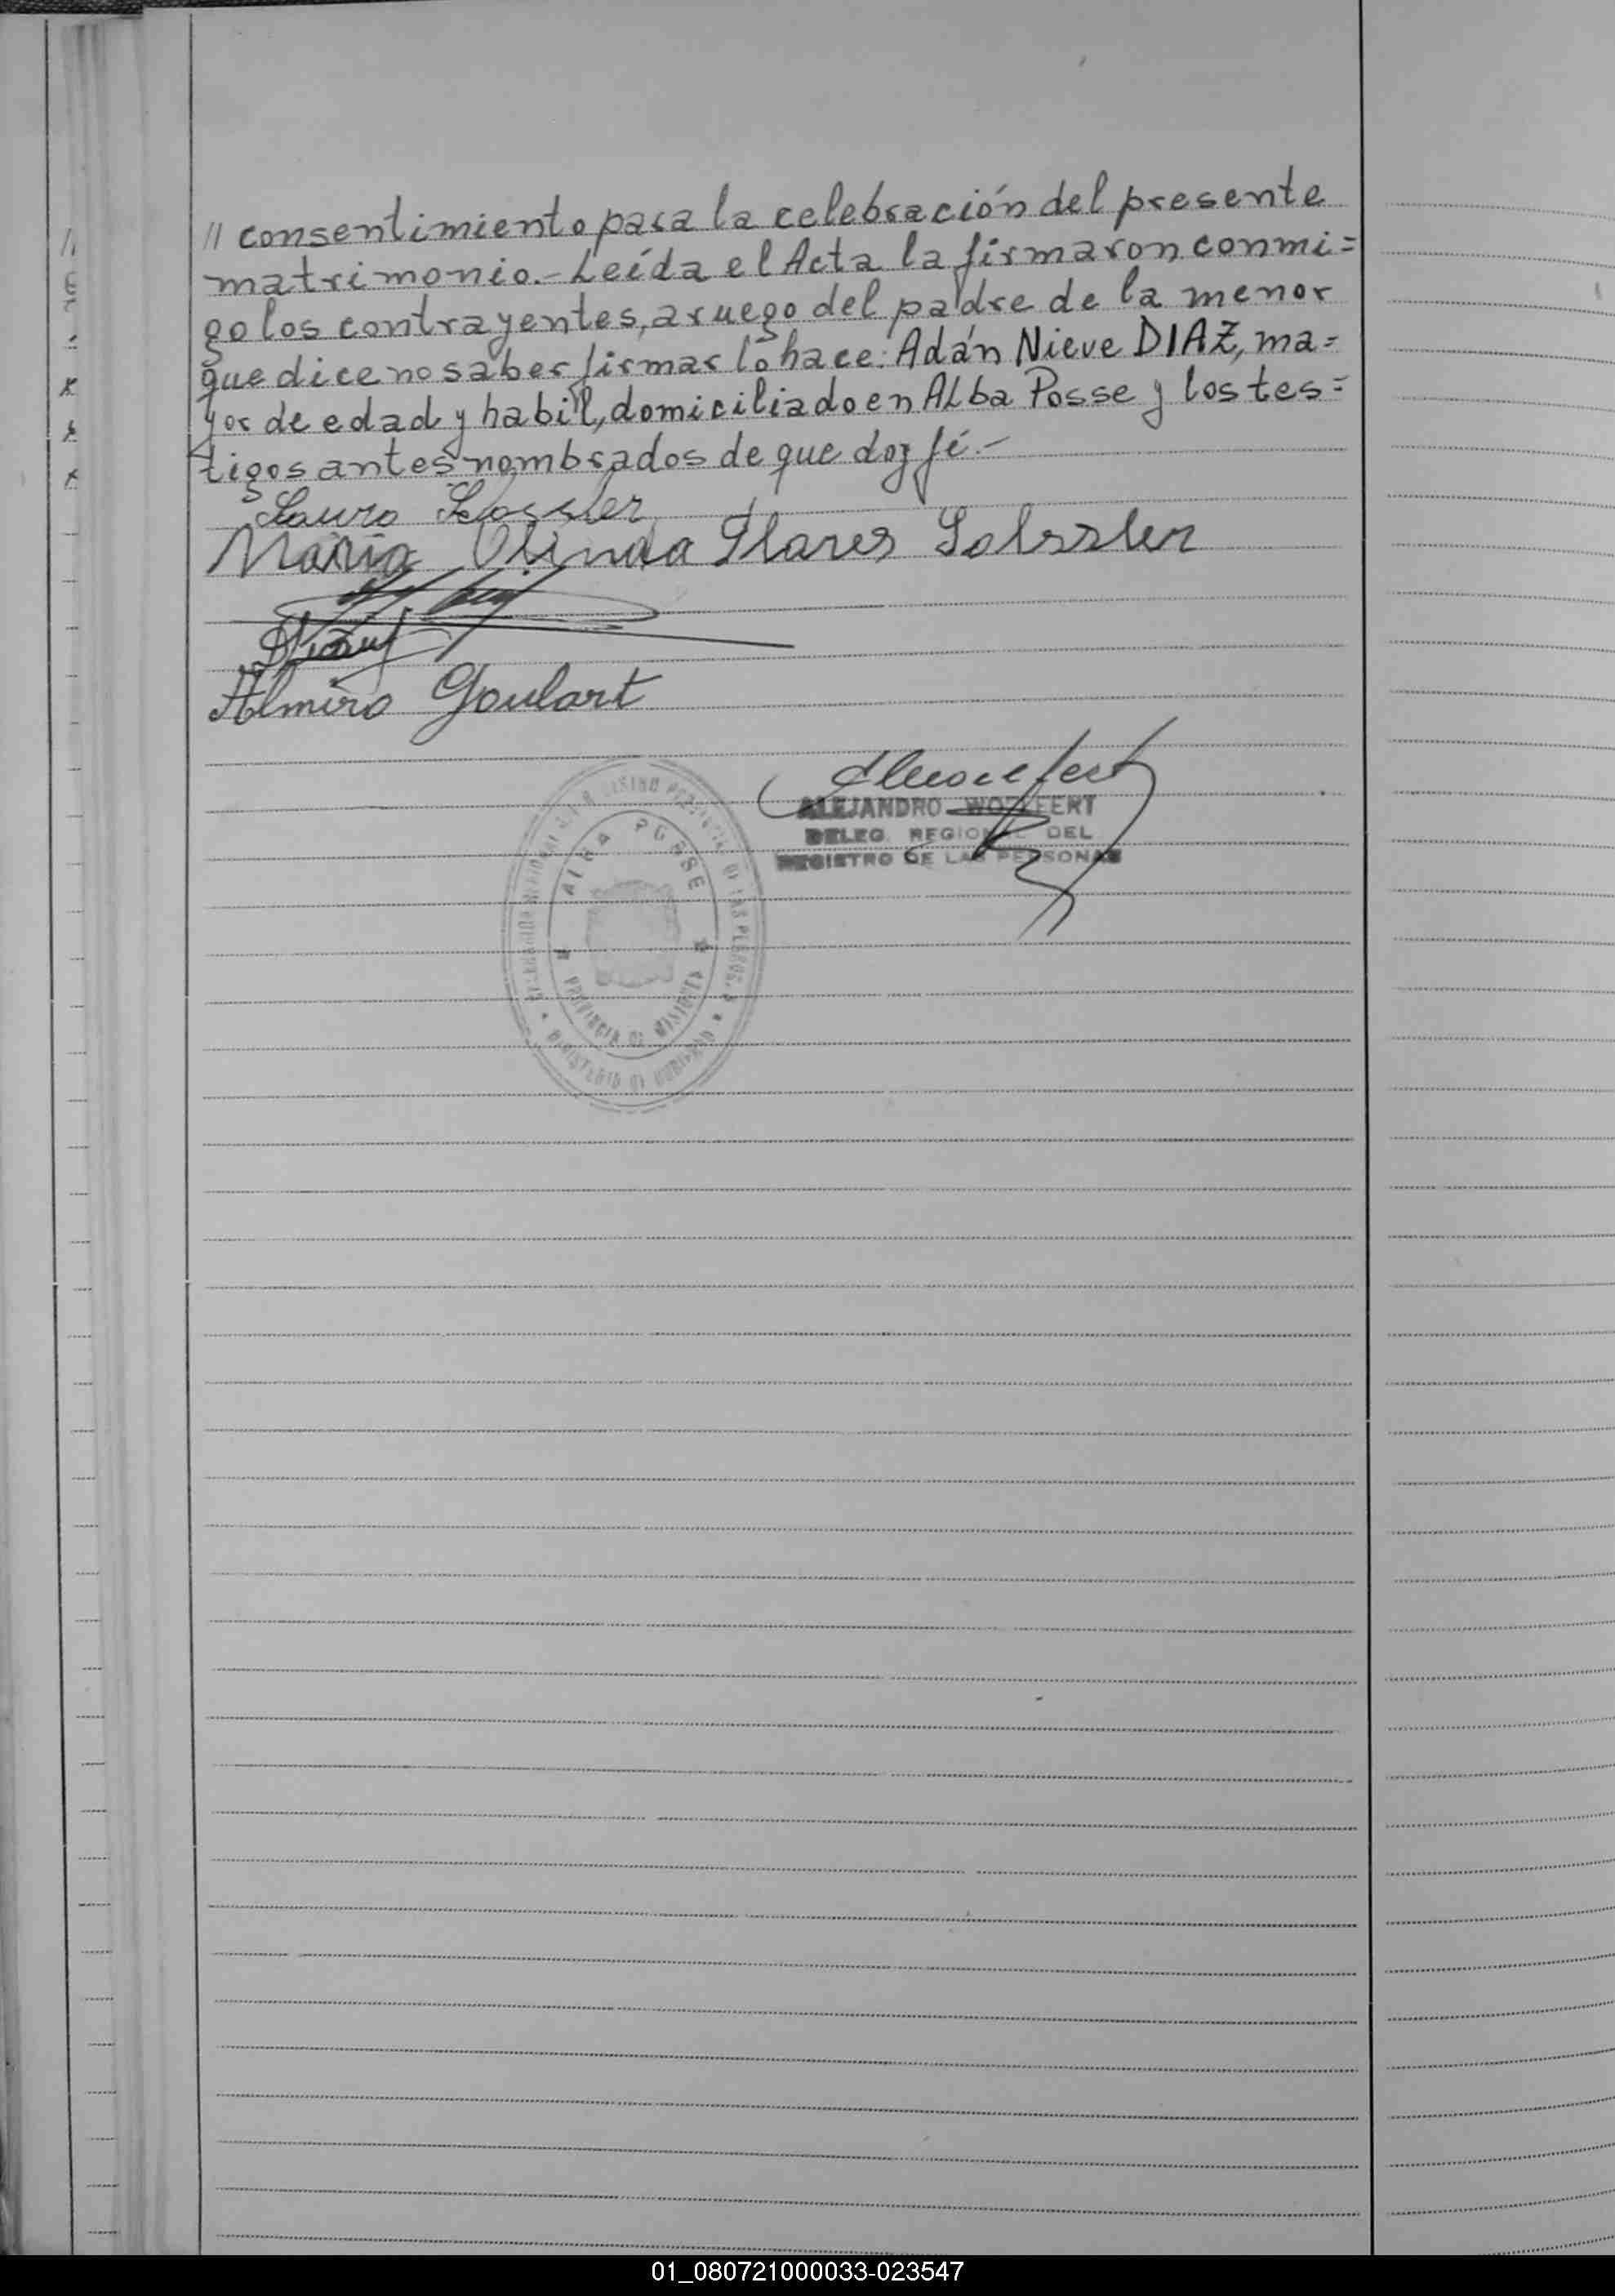 // consentimiento para la celebración del presente
matrimonio.- Leída el Acta la firmaron conmi=
go los contrayentes, a ruego del padre de la menor
que dice no saber firmar lo hace: Adán Nieve DIAZ, ma=
yor de edad y habil, domiciliado en Alba Posse y los tes=
tigos antes nombrados de que doy fé.-
Lauro
Maria Olinda
Almiro Goulart
ALEJANDRO
DELEG. REGIONAL DEL
REGISTRO DE LAS PERSONAS
ALBA POSSE
PROVINCIA DE MISIONES
MINISTERIO DE GOBIERNO
01_080721000033-023547